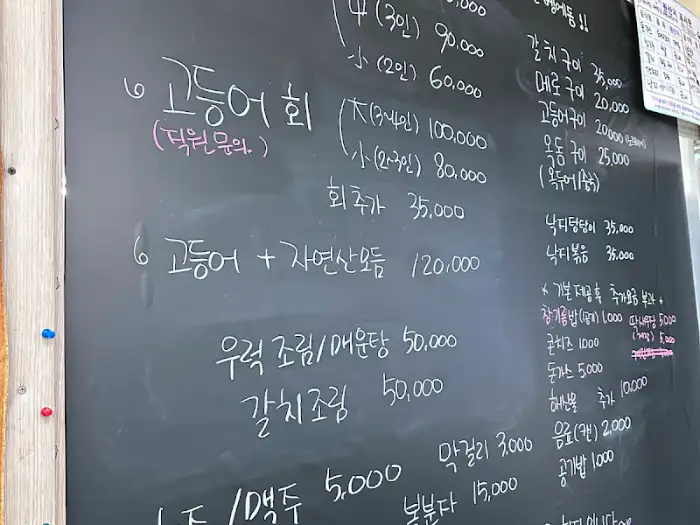 中 (3인) 90,000
小 (2인) 60,000
고등어 회 大(3~4인) 100,000
(직원문의.)
小(2~3인) 80,000
회추가 35,000
고등어 + 자연산모듬 120,000
우럭 조림/매운탕 50,000
갈치조림 50,000
맥주 5,000
막걸리 3,000
복분자 15,000
갈치구이 35,000
메로구이 20,000
고등어구이 20,000
옥돔구이 25,000
낙지탕탕이 35,000
낙지볶음 35,000
* 기본제공 후 추가요금 부과 *
참기름밥 1,000
5,000
콘치즈 1000
5,000
돈가스 5,000
해산물 추가 10,000
음료(캔) 2,000
공기밥 1,000